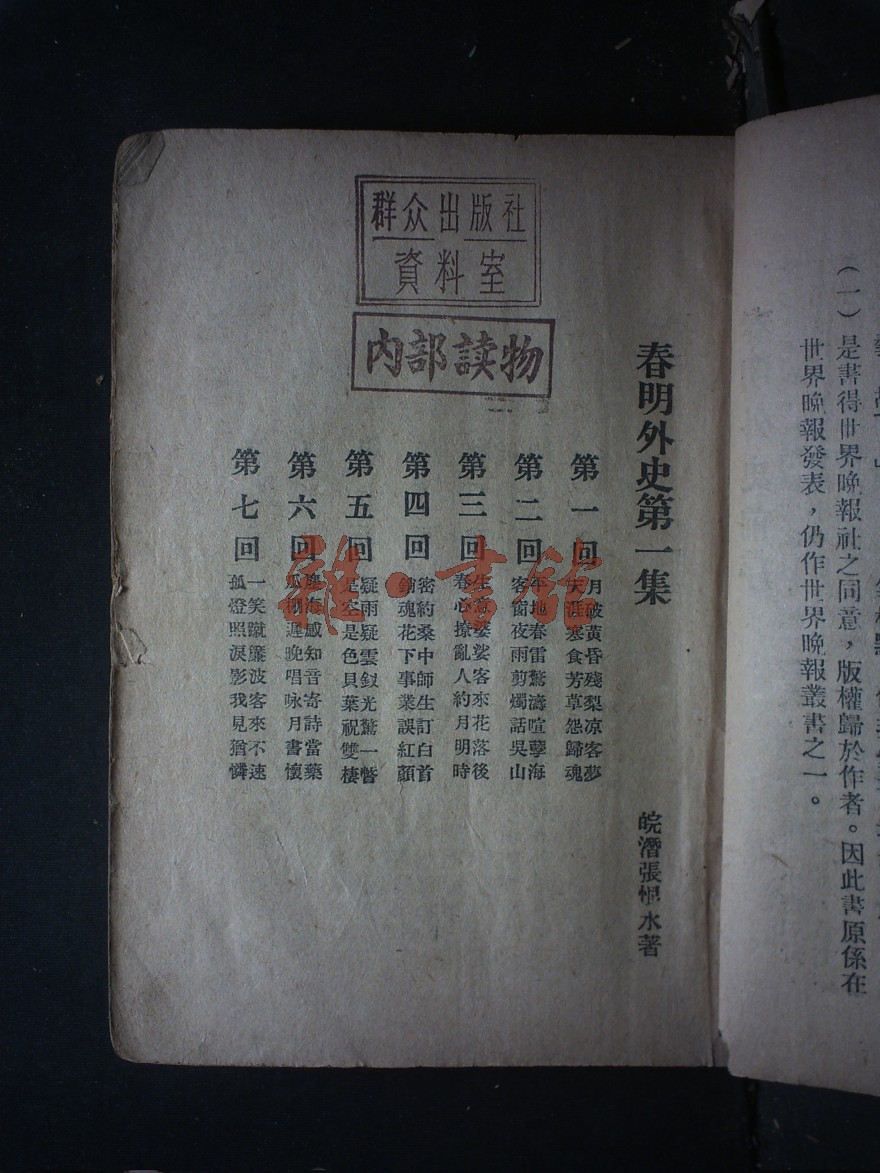 (一)是書得世界晚報社之同意，版權歸於作者。因此書原係在
世界晚報發表，仍作世界晚報叢書之一。
群众出版社
資料室
内部读物
春明外史第一集
皖潛張恨水著
第一回
月破黃昏殘梨涼客夢
天涯寒食芳草怨歸魂
第二回
平地春雷驚濤喧孽海
客窗夜雨剪燭話吳山
第三回
生意婆娑客來花落後
春心撩亂人約月明時
第四回
密約桑中師生訂白首
銷魂花下事業誤紅顏
第五回
疑雨疑雲釵光驚一瞥
是空是色貝葉祝雙棲
第六回
海感知音寄詩當藥
遲晚唱咏月書懷
第七回
一笑蹴簾波客來不速
孤燈照淚影我見猶憐
雜·書館